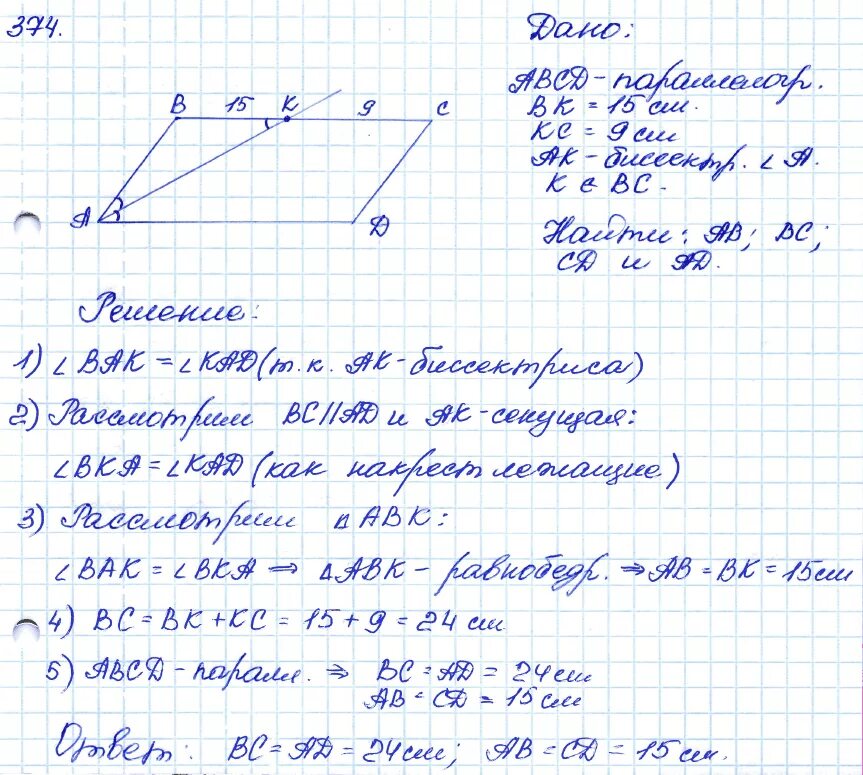 374.
Дано:
ABCD - параллелогр.
BK = 15 см.
KC = 9 см
AK - биссектр. ∠A.
K ∈ BC.
Найти: AB; BC;
CD и AD.
B 15 K 9 C
A D
Решение:
1) ∠BAK = ∠KAD (т.к. AK - биссектриса)
2) Рассмотрим BC || AD и AK - секущая:
∠BKA = ∠KAD (как накрест лежащие)
3) Рассмотрим △ABK:
∠BAK = ∠BKA ⇒ △ABK - равнобедр. ⇒ AB = BK = 15 см
4) BC = BK + KC = 15 + 9 = 24 см
5) ABCD - паралл. ⇒ BC = AD = 24 см
AB = CD = 15 см
Ответ: BC = AD = 24 см; AB = CD = 15 см.